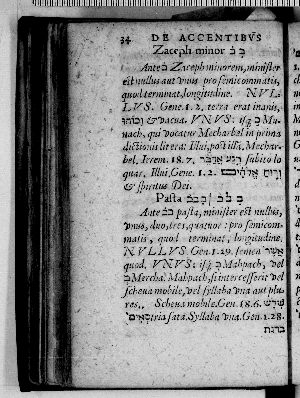 34 DE ACCENTIBVS
Zaceph minor
Ante Zaceph minorem, minister
est nullus aut vnus pro semicommatis,
quod terminat, longitudine. NVL-
LVS. Gene. 1. 2. terra erat inanis,
& vacua. VNVS: isq; Mu-
nach, qui vocatur Mecharbel in prima
dictionis litera: Illui, post illā, Mechar-
bel. Ierem. 18. 7. רגע אדבר subito lo
quar, Illui, Gene. 1. 2. ורוח אלהים
& spiritus Dei.
Pasta
Ante pasta, minister est nullus,
vnus, duo, tres, quatuor: pro semicom-
matis, quod terminat, longitudine.
NVLLVS. Gen. 1. 29. semen אשר
quod. VNVS: isq; Mahpach, vel
Mercha. Mahpach, si intercesserit vel
scheua mobile, vel syllaba vna aut plu-
res. Scheua mobile. Gen. 18. 6. שלש
tria sata. Syllaba vna. Gen. 1. 28.